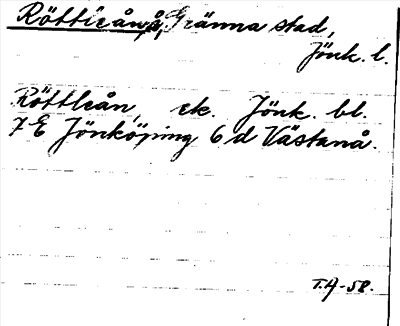 Röttleån, å, Gränna stad,
Jönk. l.
Röttleån, ek. Jönk. bl.
7 E Jönköping 6 d Västanå.
T.A-58.